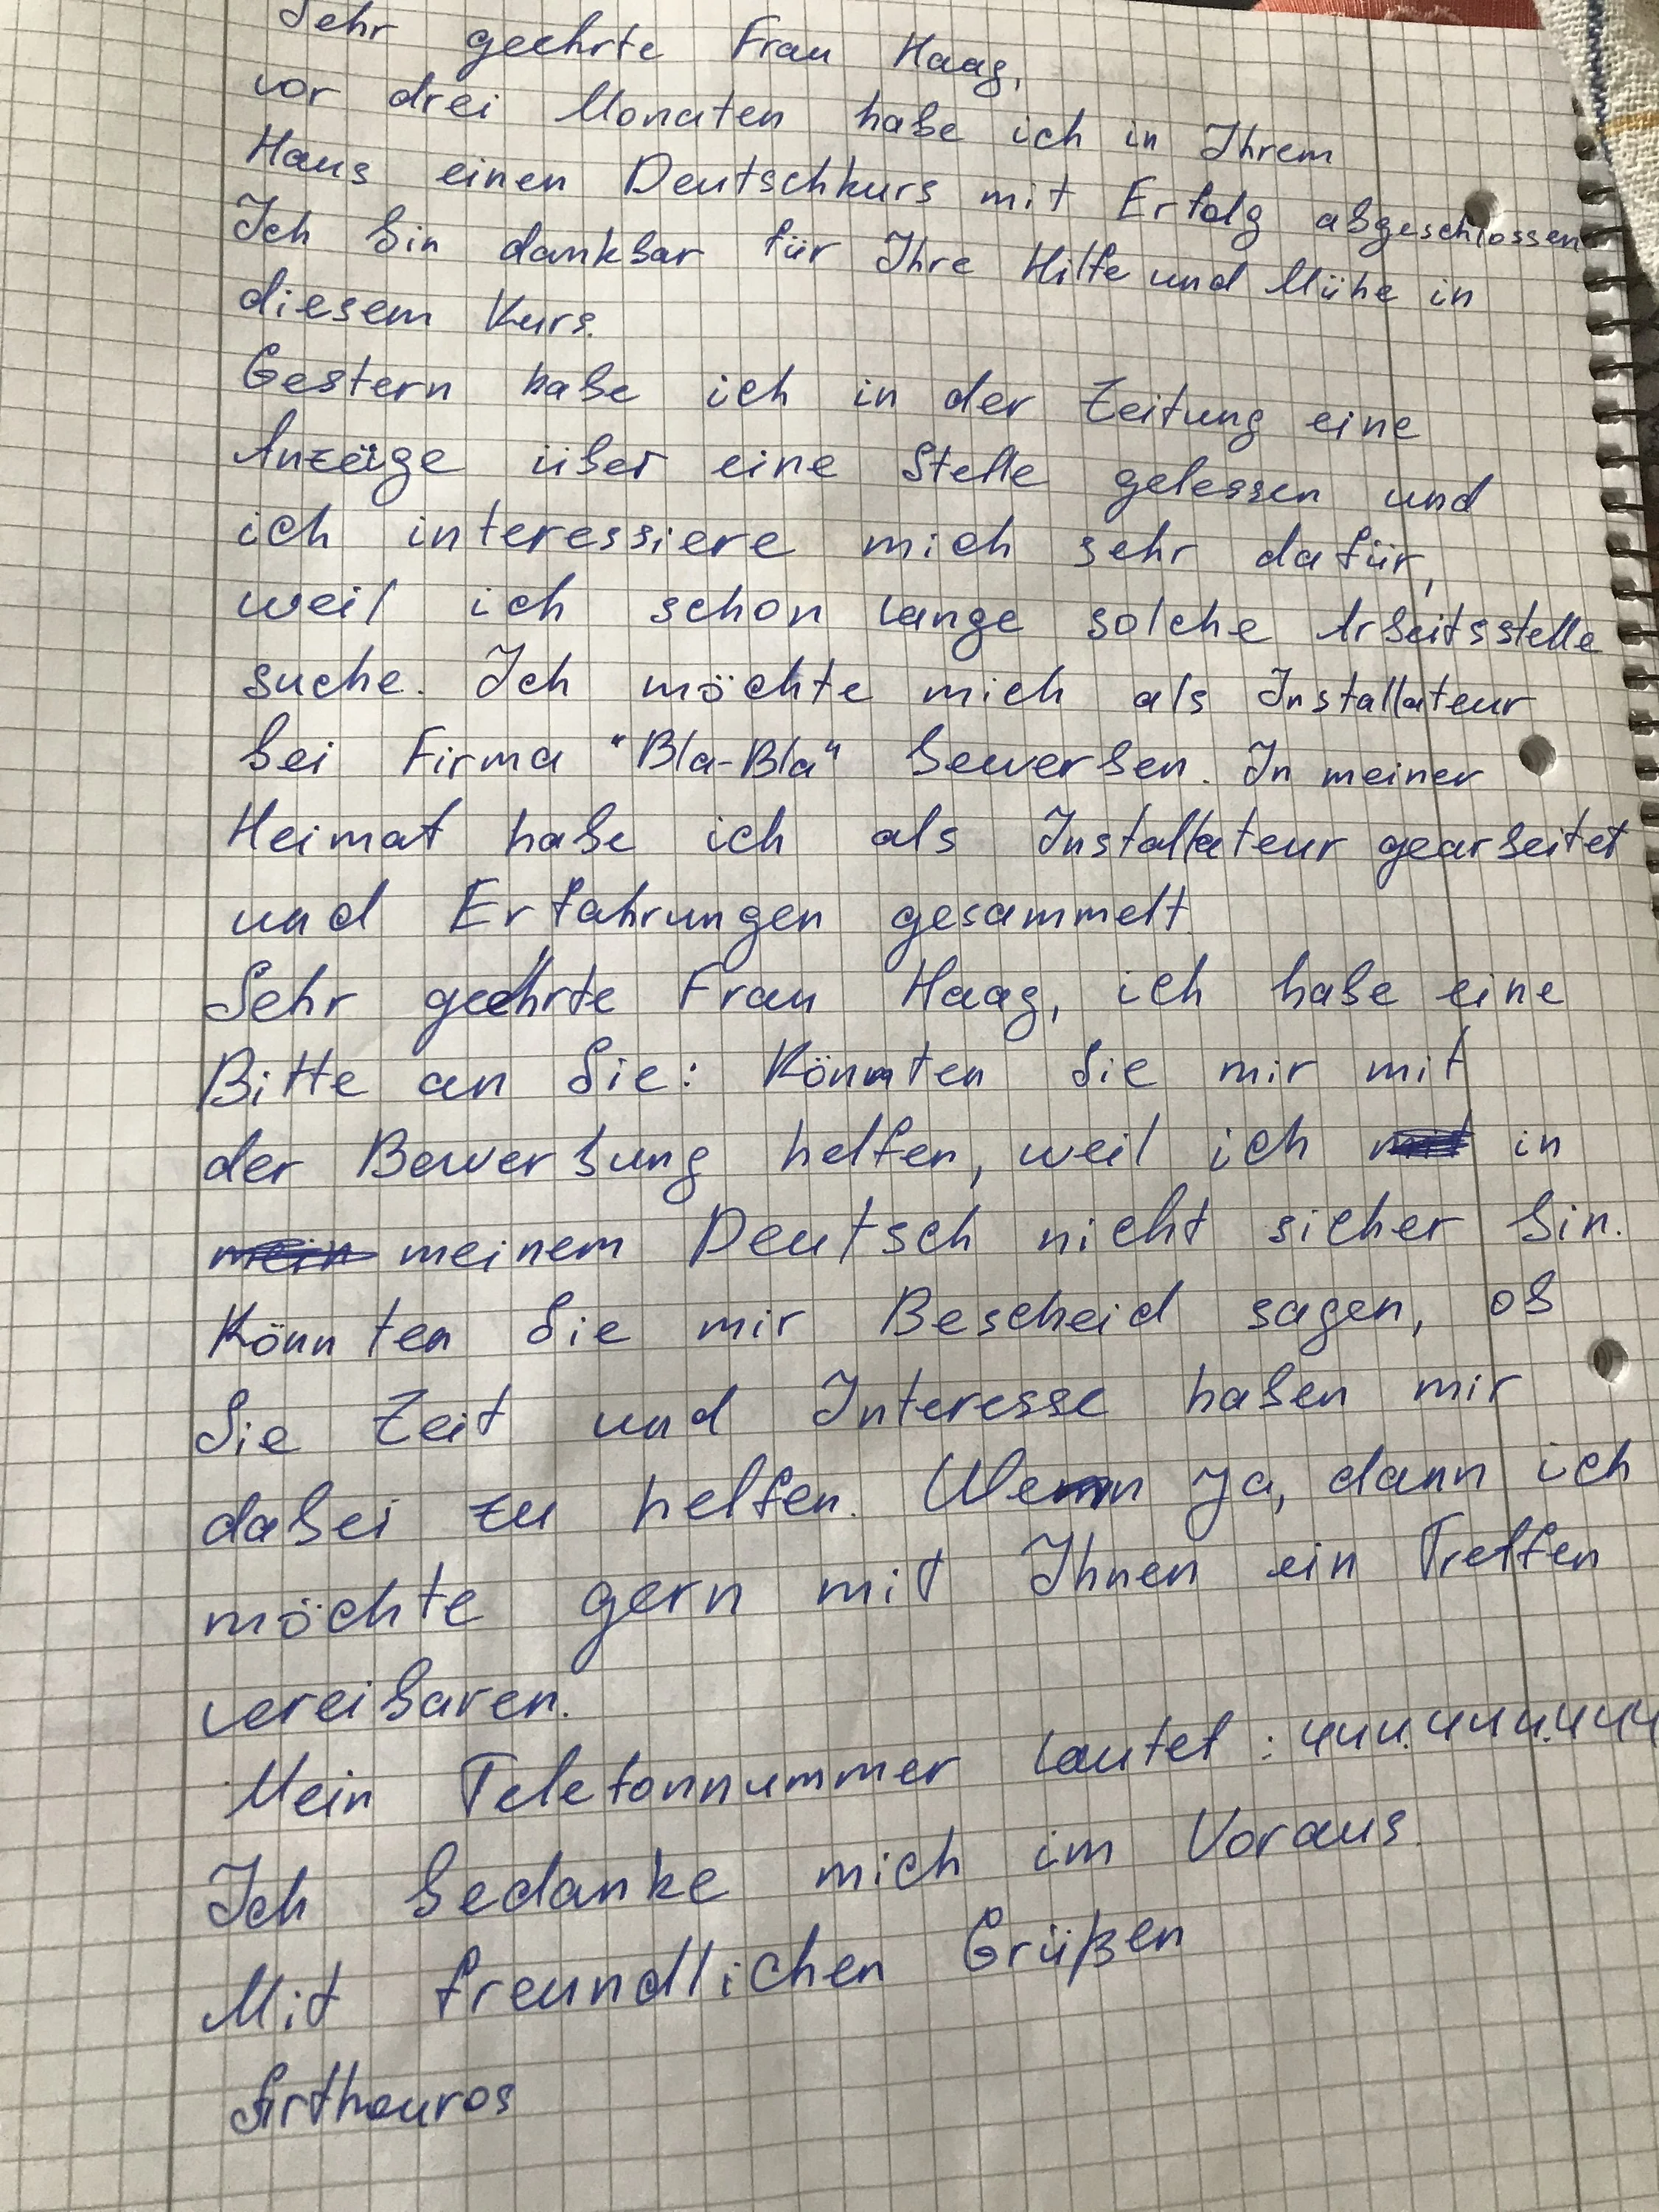 Sehr geehrte Frau Haag,
vor drei Monaten habe ich in Ihrem
Haus einen Deutschkurs mit Erfolg abgeschlossen
Ich bin dankbar für Ihre Hilfe und Mühe in
diesem Kurs.
Gestern habe ich in der Zeitung eine
über eine Stelle gelessen und
ich interessiere mich sehr dafür,
weil ich schon lange solche Arbeitsstelle
suche. Ich möchte mich als Installateur
bei Firma "Bla-Bla" bewerben. In meiner
Heimat habe ich als Installateur gearbeitet
und Erfahrungen gesammelt.
Sehr geehrte Frau Haag, ich habe eine
Bitte an Sie: Könnten Sie mir mit
der Bewerbung helfen, weil ich in
meinem Deutsch nicht sicher bin.
Könnten Sie mir Bescheid sagen, ob
Sie Zeit und Interesse haben mir
dabei zu helfen. Wenn ja, dann ich
möchte gern mit Ihnen ein Treffen
vereibaren.
Mein Telefonnummer lautet :
Ich bedanke mich im Voraus.
Mit freundlichen Grüßen
Arthouros